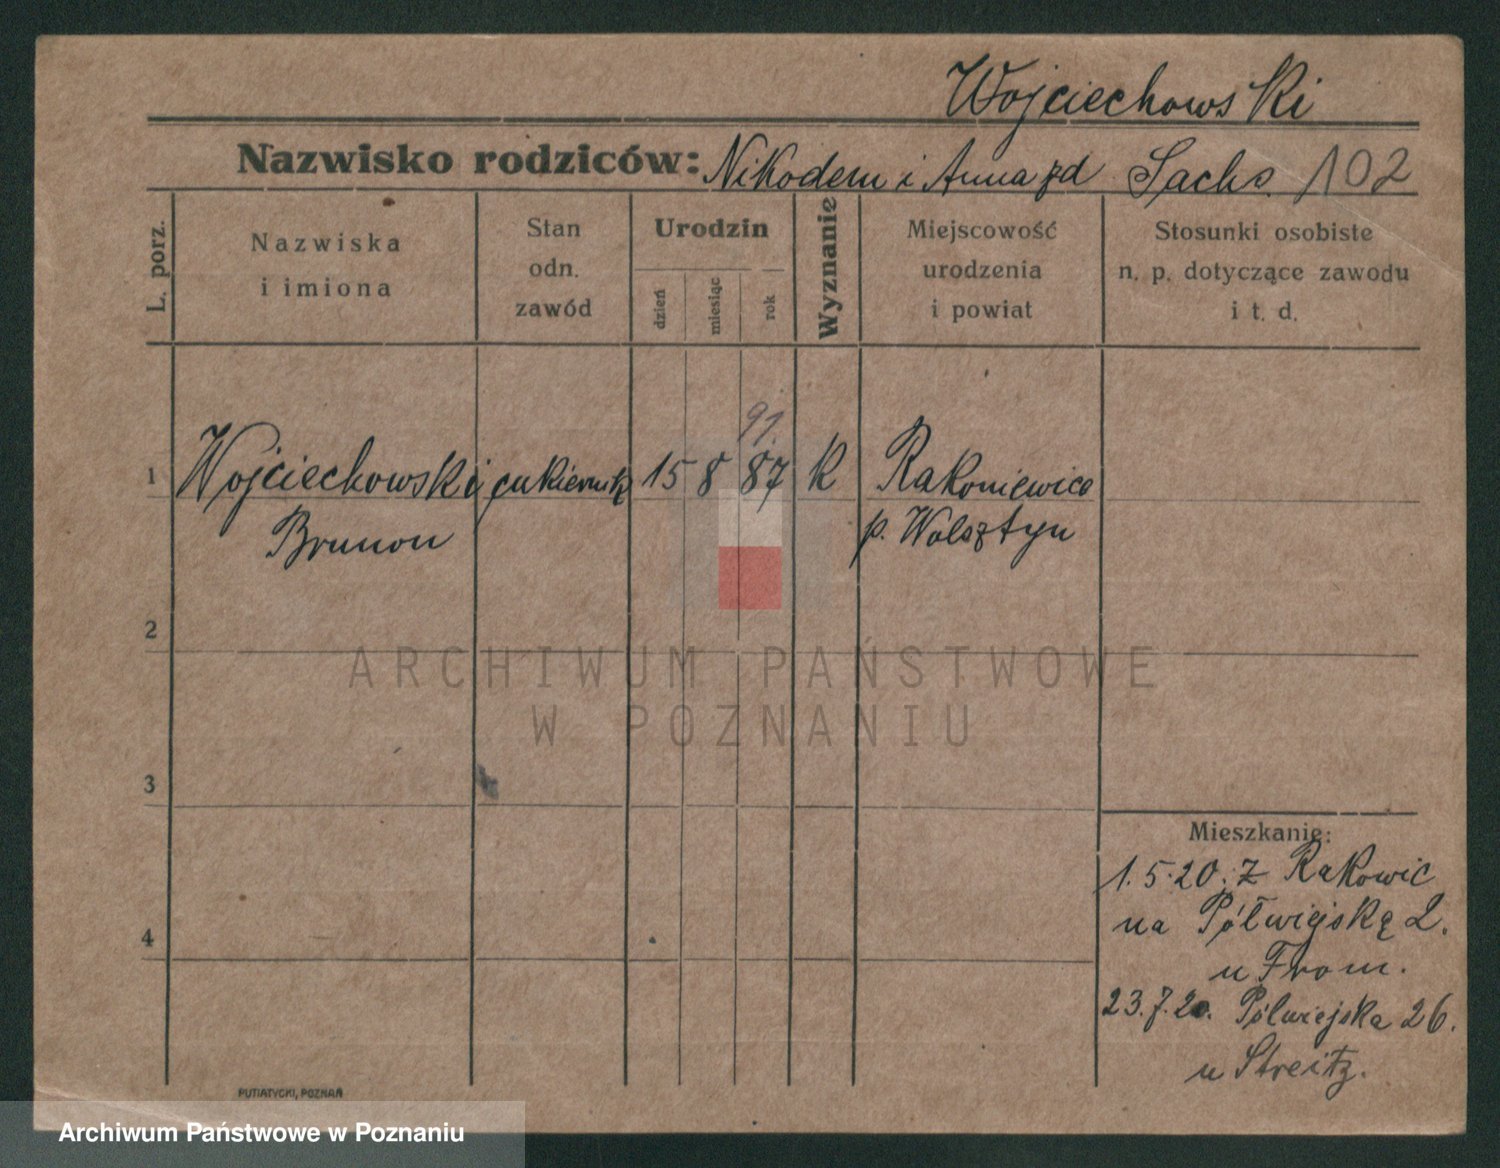 Wojciechowski
Nazwisko rodziców: Nikodem i Anna zd Sachs. 102
L. porz.
Nazwiska
i imiona
Stan
odn.
zawód
Urodzin
dzień
miesiąc
rok
Wyznanie
Miejscowość
urodzenia
i powiat
Stosunki osobiste
n. p. dotyczące zawodu
i t. d.
91.
1 Wojciechowski cukiernik 15 8 87 k Rakoniewice
Brunon p. Wolsztyn
2
ARCHIWUM PAŃSTWOWE
W POZNANIU
3
Mieszkanie:
1.5.20. z Rakowic
na Półwiejską 2.
4
u From.
23.7.20. Półwiejska 26.
u Streitz.
PUTIATYCKI, POZNAŃ
Archiwum Państwowe w Poznaniu